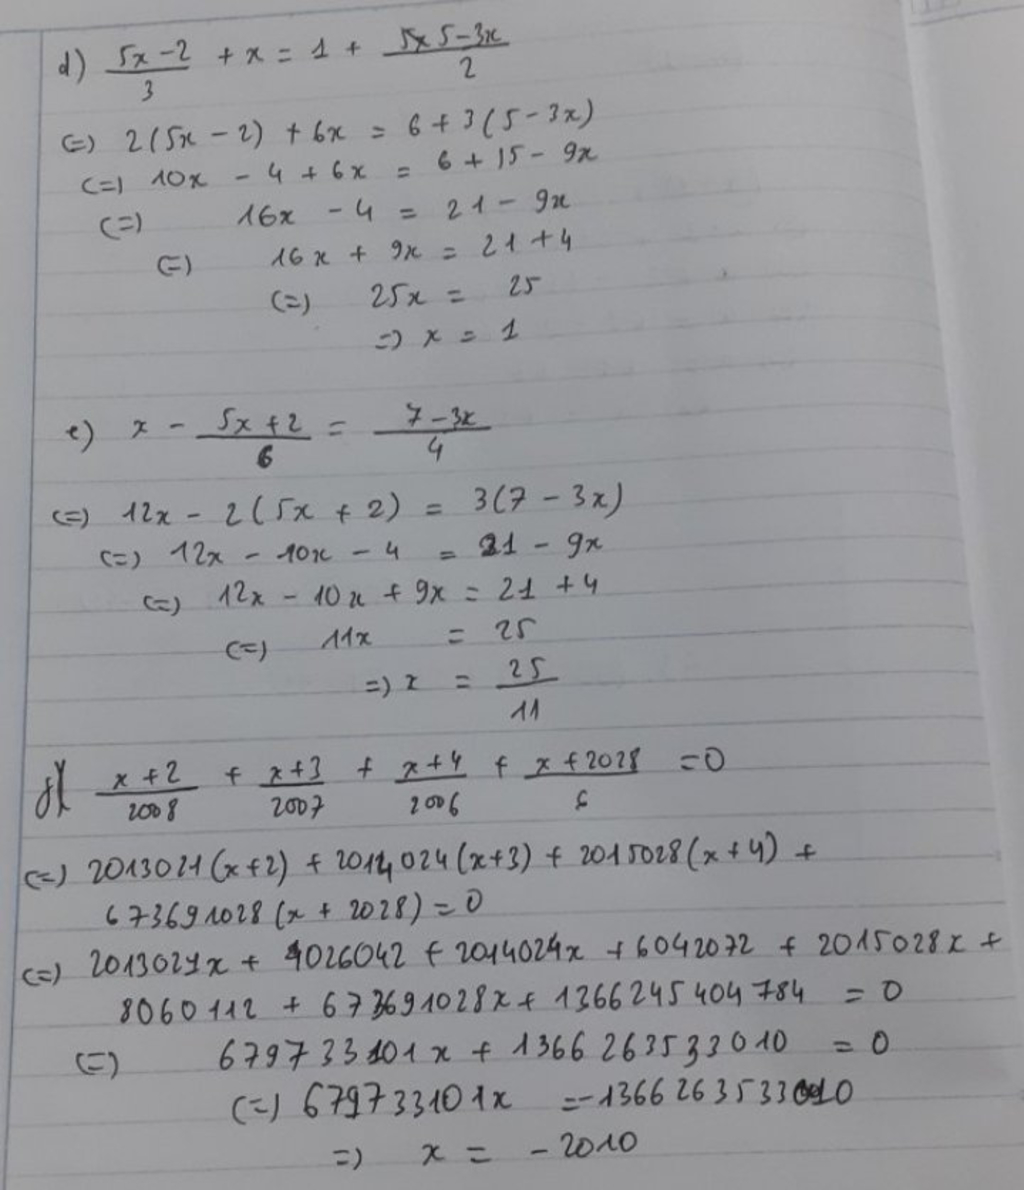 d) (5x - 2)/3 + x = 1 + (5 - 3x)/2
(=) 2(5x - 2) + 6x = 6 + 3(5 - 3x)
(=) 10x - 4 + 6x = 6 + 15 - 9x
(=) 16x - 4 = 21 - 9x
(=) 16x + 9x = 21 + 4
(=) 25x = 25
=) x = 1
e) x - (5x + 2)/6 = (7 - 3x)/4
(=) 12x - 2(5x + 2) = 3(7 - 3x)
(=) 12x - 10x - 4 = 21 - 9x
(=) 12x - 10x + 9x = 21 + 4
(=) 11x = 25
=) x = 25/11
f) (x + 2)/2008 + (x + 3)/2007 + (x + 4)/2006 + (x + 2028)/6 = 0
(=) 2013021(x + 2) + 2014024(x + 3) + 2015028(x + 4) +
673691028(x + 2028) = 0
(=) 2013021x + 4026042 + 2014024x + 6042072 + 2015028x +
8060112 + 673691028x + 1366245404784 = 0
(=) 679733101x + 1366263533010 = 0
(=) 679733101x = -1366263533010
=) x = -2010